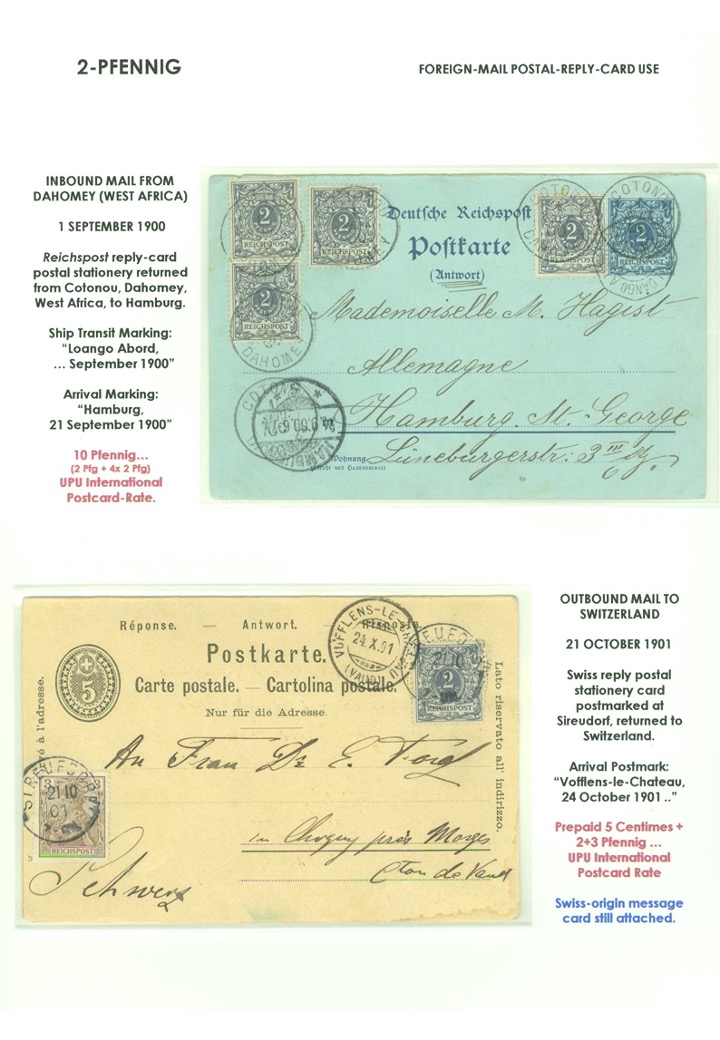 2-PFENNIG
FOREIGN-MAIL POSTAL-REPLY-CARD USE
INBOUND MAIL FROM
DAHOMEY (WEST AFRICA)
1 SEPTEMBER 1900
Reichspost reply-card
postal stationery returned
from Cotonou, Dahomey,
West Africa, to Hamburg.
Ship Transit Marking:
“Loango Abord,
... September 1900”
Arrival Marking:
“Hamburg,
21 September 1900”
10 Pfennig...
(2 Pfg + 4x 2 Pfg)
UPU International
Postcard-Rate.
2
REICHSPOST
2
REICHSPOST
2
REICHSPOST
DAHOMEY
2
REICHSPOST
COTONOU
2
REICHSPOST
COTONOU
Deutsche Reichspost
Postkarte
(Antwort)
Mademoiselle M. Hagist
Allemagne
Hamburg St. George
Wohnung
Lüneburgerstr: 3 III
HAMBURG
Réponse. — Antwort. — Risposta.
Postkarte.
Carte postale. — Cartolina postale.
Nur für die Adresse.
5
VUFFLENS-LE-CHATEAU
24.X.01
(VAUD)
2
REICHSPOST
21 10
Lato riservato all' indirizzo.
é à l'adresse.
3
REICHSPOST
21 10
01
An Frau Dr E. Voigt
in Chigny près Morges
Cton de Vaud
Schweiz
OUTBOUND MAIL TO
SWITZERLAND
21 OCTOBER 1901
Swiss reply postal
stationery card
postmarked at
Sireudorf, returned to
Switzerland.
Arrival Postmark:
“Vofflens-le-Chateau,
24 October 1901 ..”
Prepaid 5 Centimes +
2+3 Pfennig ...
UPU International
Postcard Rate
Swiss-origin message
card still attached.